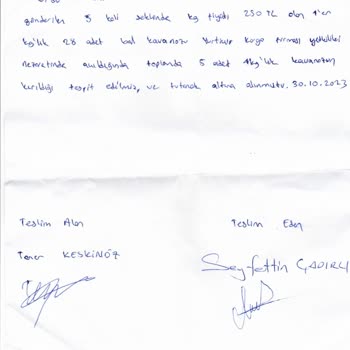 gönderilen 8 koli şeklinde kg fiyatı 230 TL olan 1'er
kg'lık 28 adet bal kavanozu Yurtiçi kargo firması yetkilileri
nezaretinde açıldığında toplamda 5 adet 1kg'lık kavanozun
kırıldığı tespit edilmiş, ve tutanak altına alınmıştır. 30.10.2023
Teslim Alan
Teslim Eden
Taner KESKİNÖZ
Seyfettin ÇADIRLI